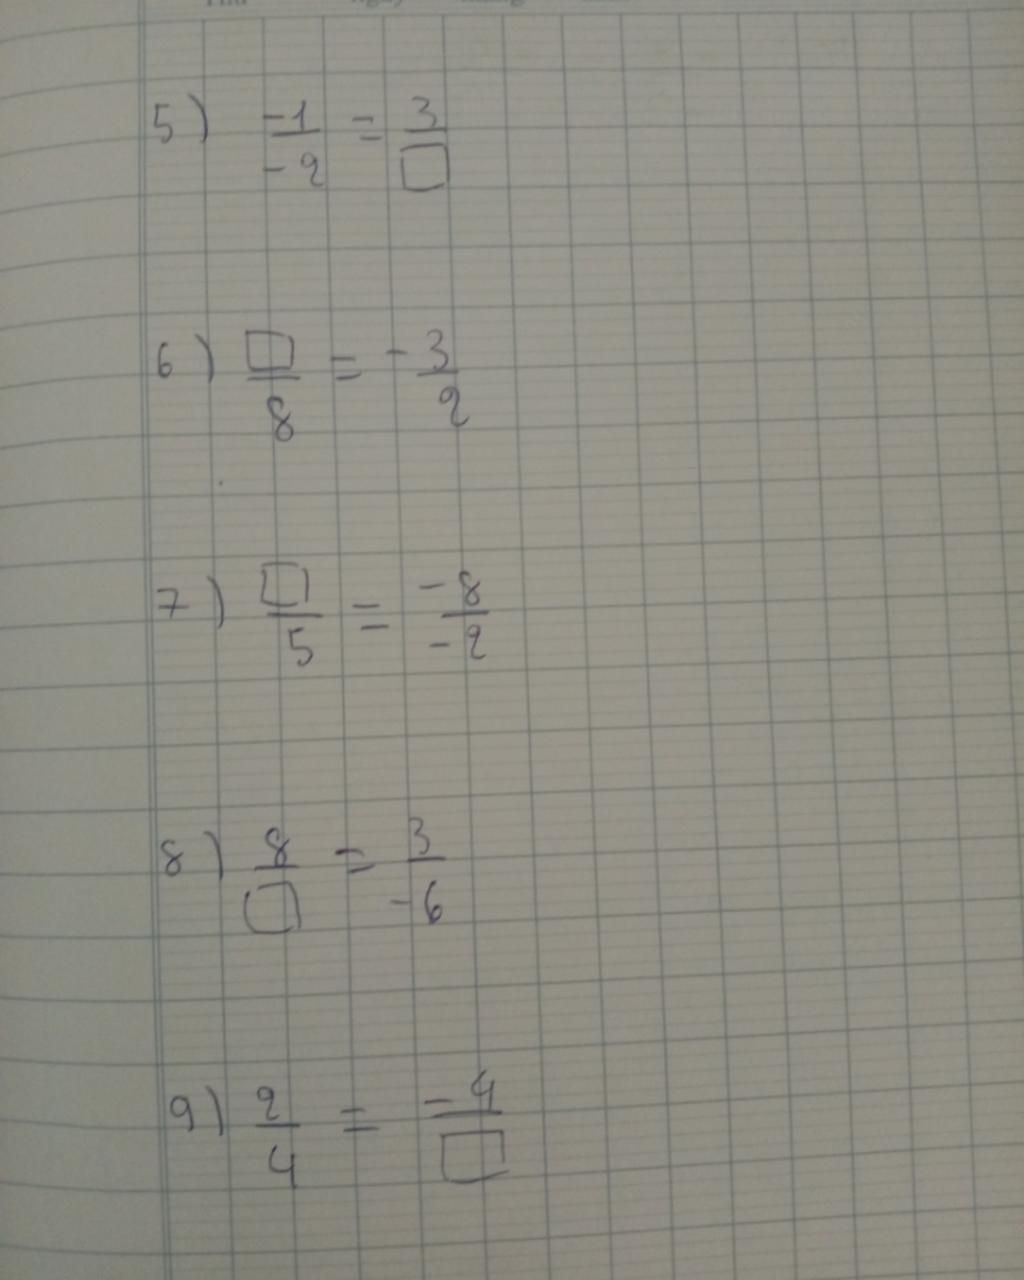 5) -1/-2 = 3/□
6) □/8 = -3/2
7) □/5 = -8/-2
8) 8/□ = 3/-6
9) 2/4 = -4/□